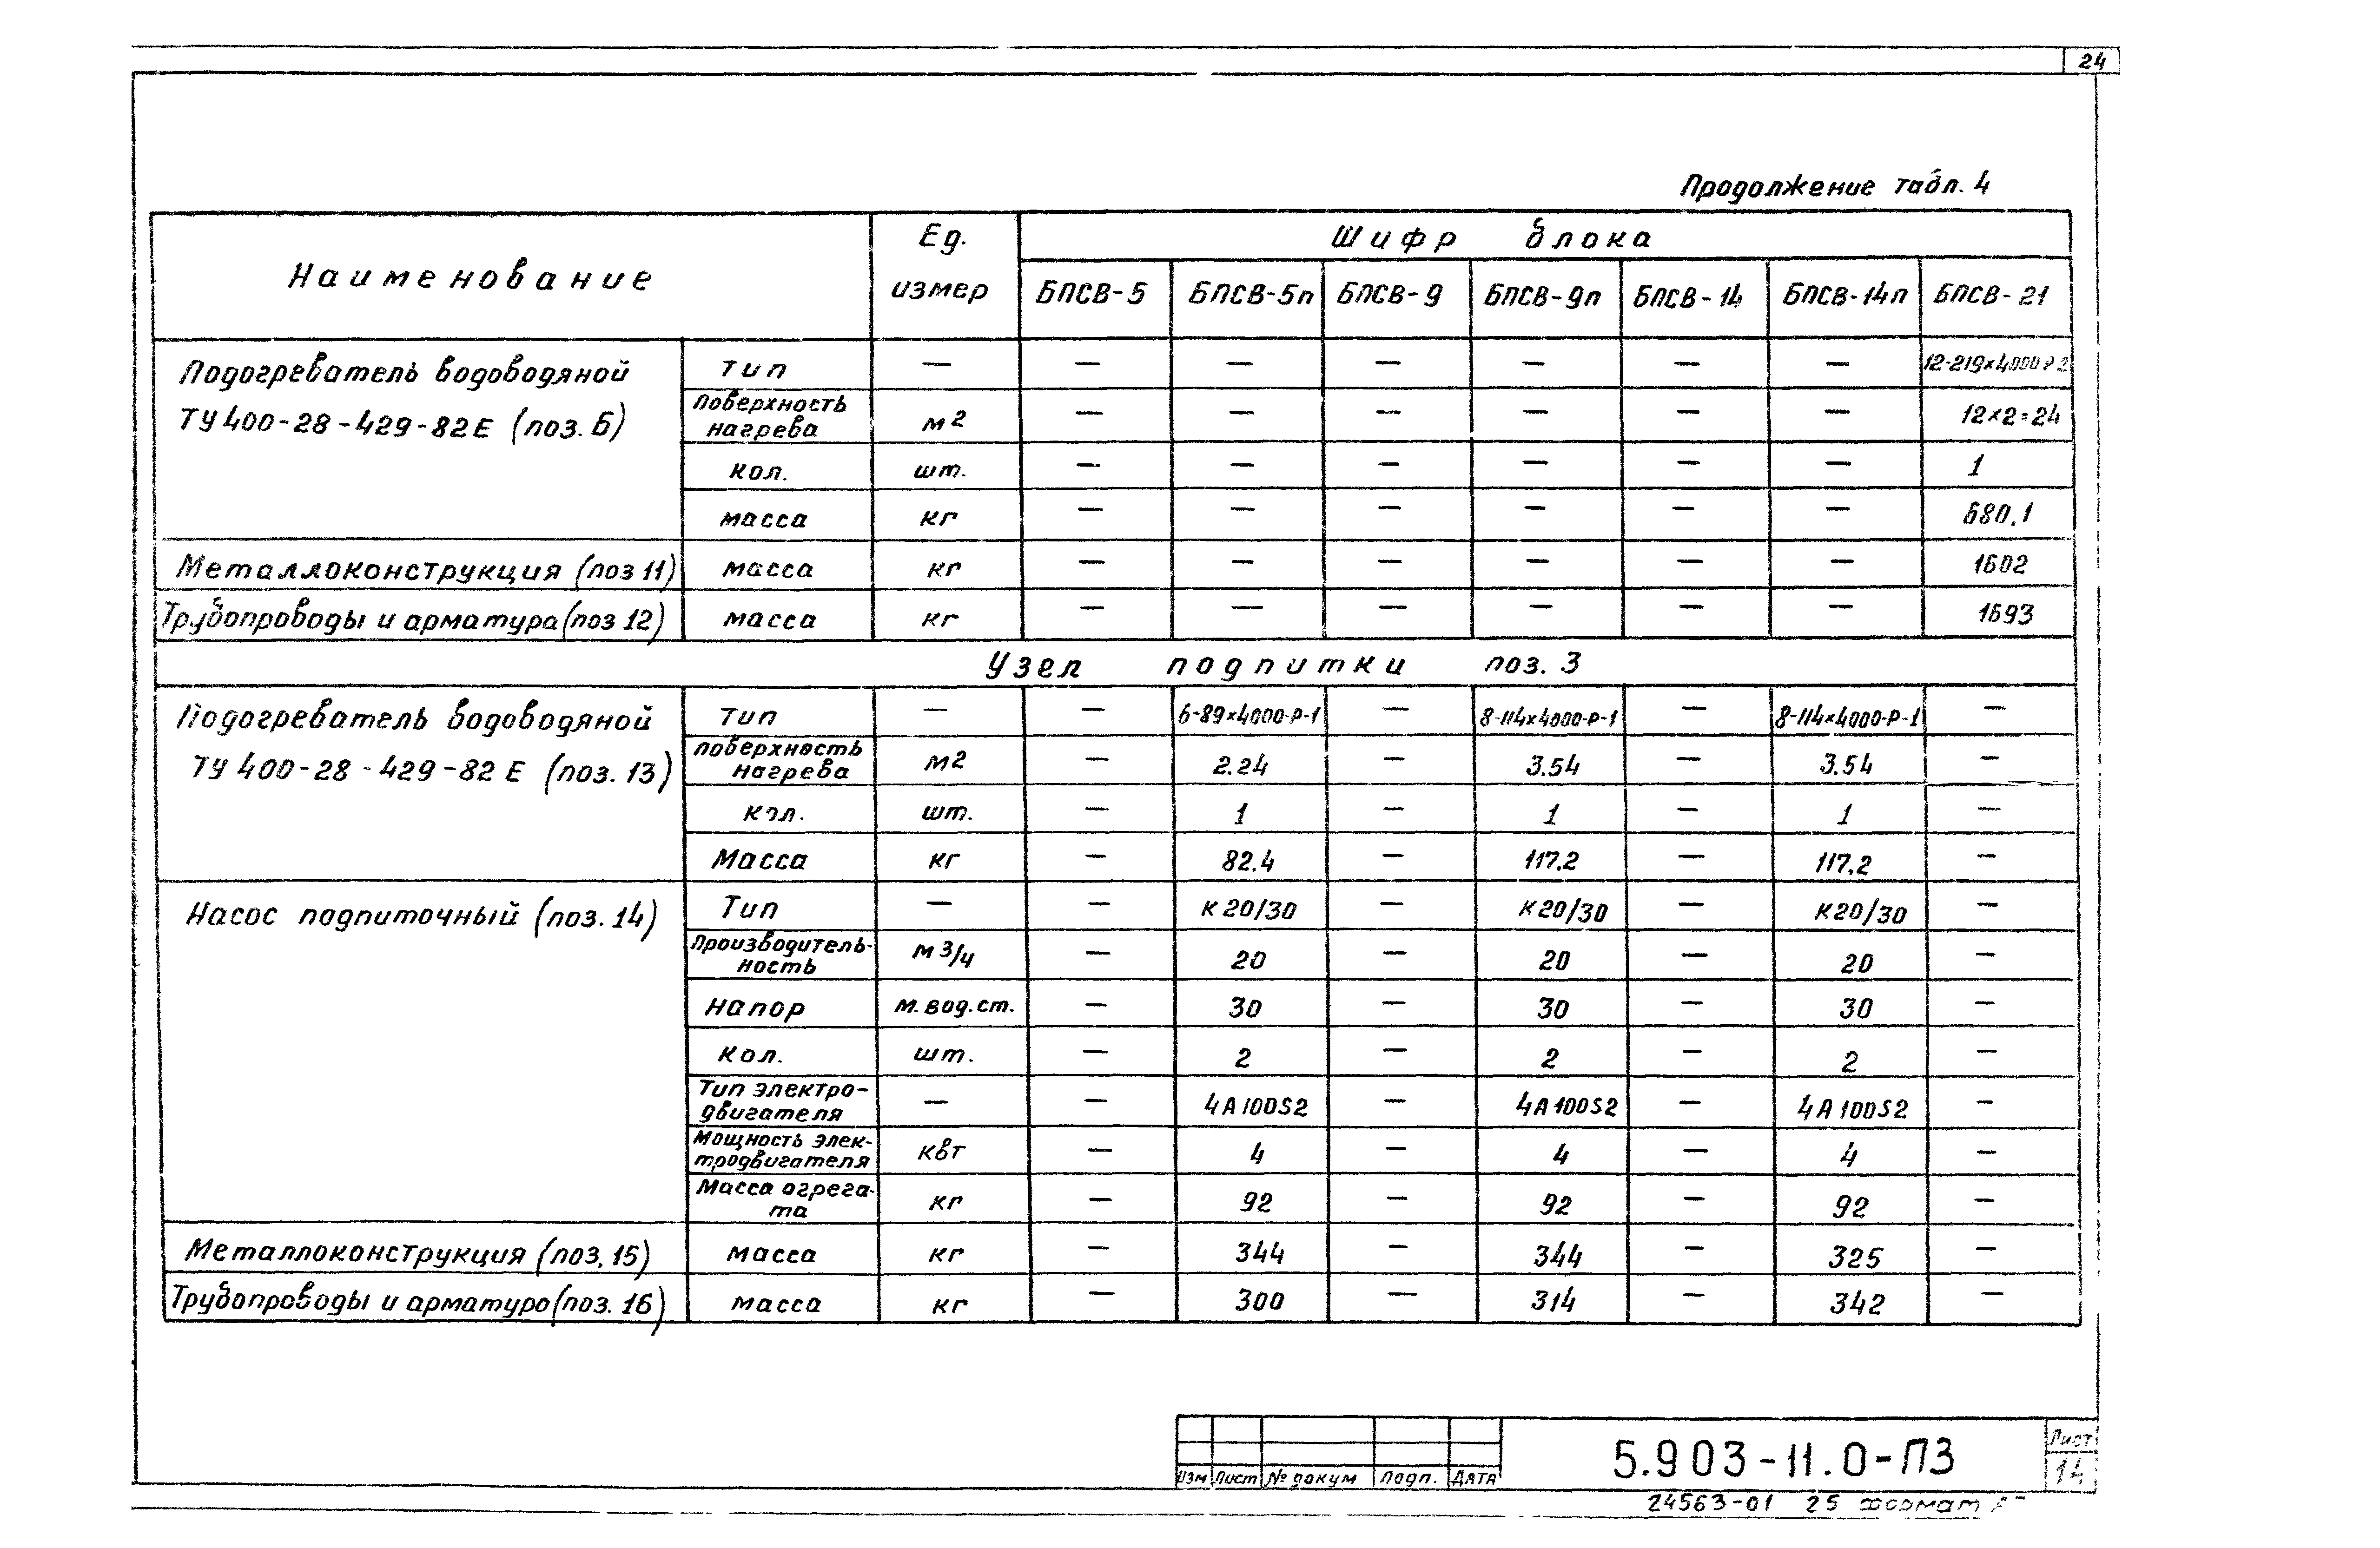 24
Продолжение табл. 4
Наименование
Ед. измер
Шифр блока
БПСВ-5 БПСВ-5п БПСВ-9 БПСВ-9п БПСВ-14 БПСВ-14п БПСВ-21
Подогреватель водоводяной
ТУ 400-28-429-82Е (поз. 6)
тип — — — — — — — 12-219×4000 Р-2
поверхность нагрева м2 — — — — — — 12×2=24
кол. шт. — — — — — — 1
масса кг — — — — — — 680.1
Металлоконструкция (поз 11) масса кг — — — — — — 1602
Трубопроводы и арматура (поз 12) масса кг — — — — — — 1693
Узел подпитки поз. 3
Подогреватель водоводяной
ТУ 400-28-429-82 Е (поз. 13)
тип — — 6-89×4000-Р-1 — 8-114×4000-Р-1 — 8-114×4000-Р-1 —
поверхность нагрева м2 — 2.24 — 3.54 — 3.54 —
кол. шт. — 1 — 1 — 1 —
Масса кг — 82.4 — 117.2 — 117.2 —
Насос подпиточный (поз. 14)
Тип — — К 20/30 — К20/30 — К20/30 —
Производитель-ность м3/ч — 20 — 20 — 20 —
напор м. вод. ст. — 30 — 30 — 30 —
кол. шт. — 2 — 2 — 2 —
Тип электро-двигателя — — 4А100S2 — 4А100S2 — 4А100S2 —
Мощность элек-тродвигателя квт — 4 — 4 — 4 —
Масса агрега-та кг — 92 — 92 — 92 —
Металлоконструкция (поз. 15) масса кг — 344 — 344 — 325 —
Трубопроводы и арматура (поз. 16) масса кг — 300 — 314 — 342 —
Изм Лист № докум Подп. ДАТА
5.903-11.0-ПЗ
Лист
14
24563-01 25 формат